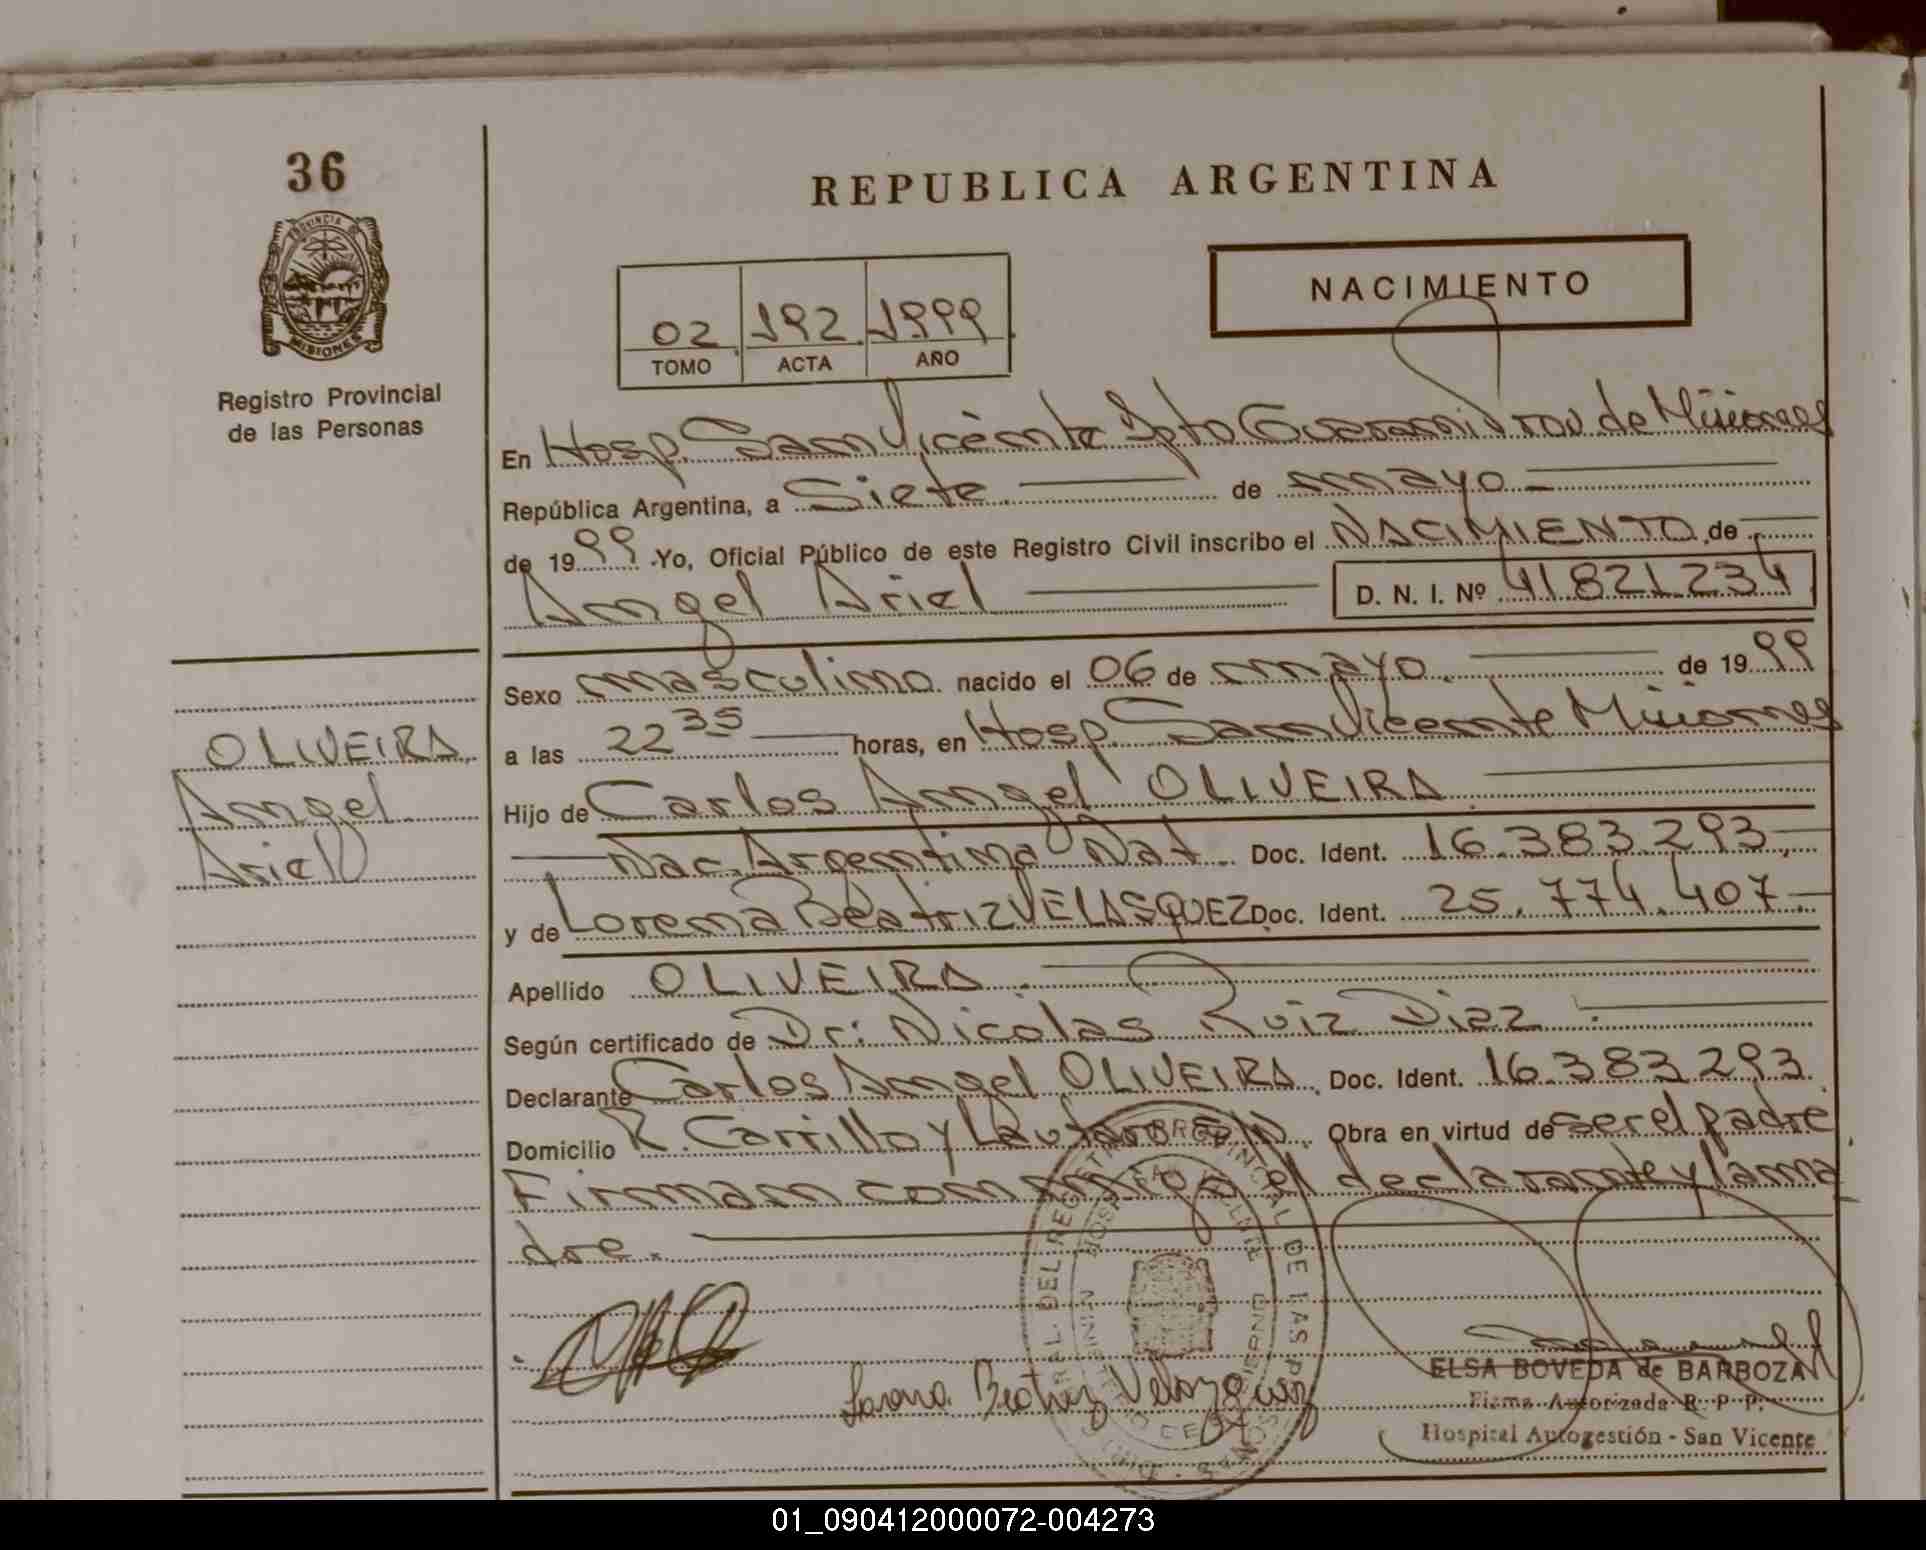 36
PROVINCIA DE
MISIONES
Registro Provincial
de las Personas
REPUBLICA ARGENTINA
02 192 1999
TOMO ACTA AÑO
NACIMIENTO
En Hosp. San Vicente Dpto Guarani Prov de Misiones
República Argentina, a Siete de mayo
de 1999 Yo, Oficial Público de este Registro Civil inscribo el NACIMIENTO de
Angel Ariel D. N. I. Nº 41821234
Sexo masculino nacido el 06 de mayo de 1999
a las 22 35 horas, en Hosp. San Vicente Misiones
Hijo de Carlos Angel OLIVEIRA
Nac. Argentina Nat. Doc. Ident. 16.383.293
y de Lorena Beatriz VELASQUEZ Doc. Ident. 25.774.407
Apellido OLIVEIRA
Según certificado de Dr: Nicolas Ruiz Diaz
Declarante Carlos Angel OLIVEIRA Doc. Ident. 16.383.293
Domicilio R. Carrillo y Lautaro Obra en virtud de ser el padre
Firman conmigo el declarante y la ma
dre.
OLIVEIRA
Angel
Ariel
Lorena Beatriz Velazquez
ELSA BOVEDA de BARBOZA
Firma Autorizada R. P. P.
Hospital Autogestión - San Vicente
01_090412000072-004273